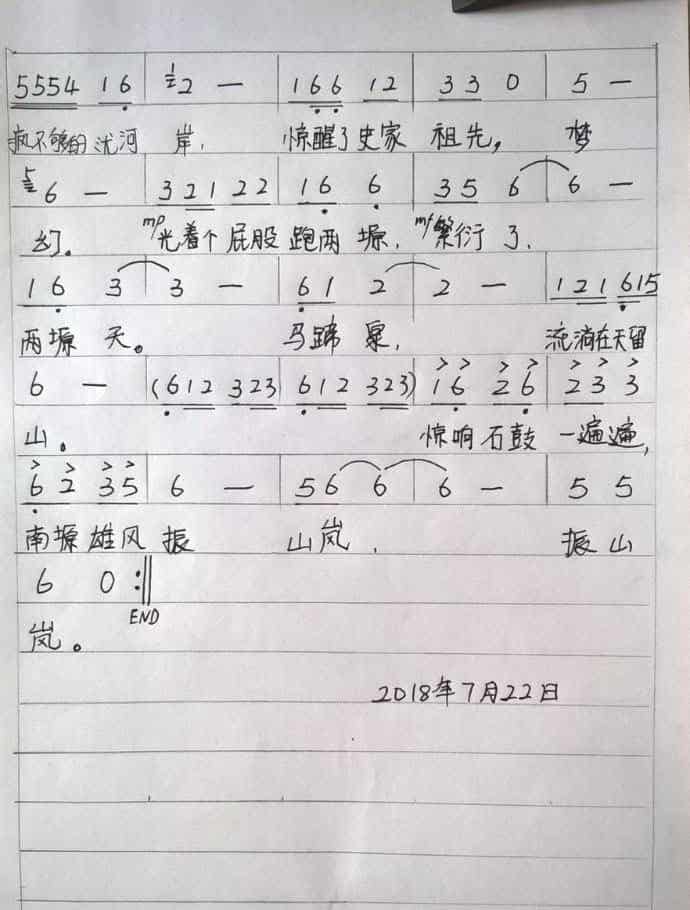 5554 16 | ½2 — | 166 12 | 33 0 | 5 —
疯不够的 沋河 岸, 惊醒了史家 祖先, 梦
5 6 — | 321 22 | 16 6 | 35 6 | 6 —
幻。 mp光着个屁股 跑两塬, mf繁衍了,
16 3 | 3 — | 61 2 | 2 — | 121 615
两塬天。 马蹄泉, 流淌在天留
6 — | (612 323 | 612 323) | 16 26 | 23 3
山。 惊响石鼓 一遍遍,
6 2 35 | 6 — | 56 6 | 6 — | 5 5
南塬雄风 振 山岚, 振山
6 0 :‖
END
岚。
2018年7月22日